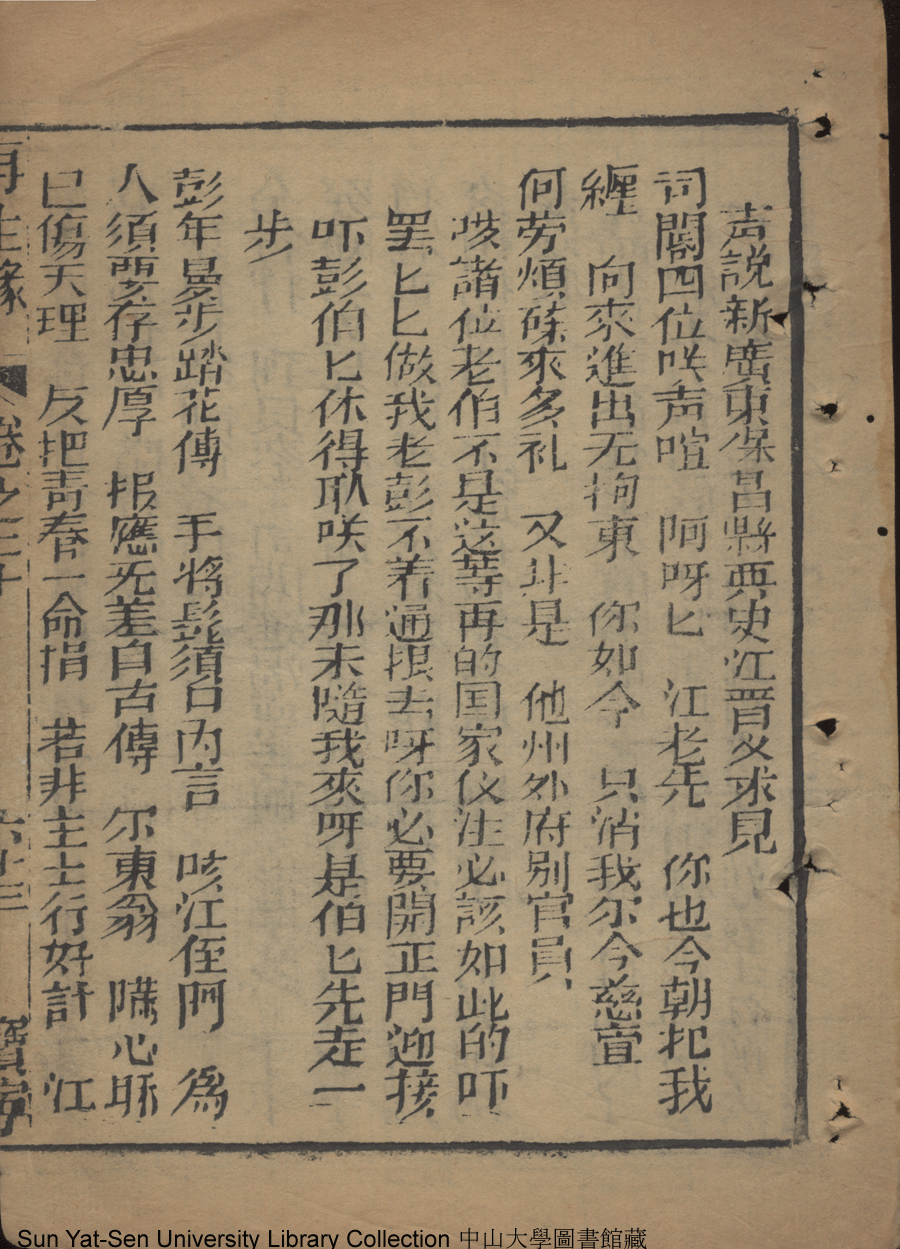 声説新廣東保昌縣典史江晋文求見
司閽四位咲声喧　阿呀匕　江老先　你也今朝把我
纏　向來進出无拘束　你如今　只消我尔今慈萱
何劳煩碌來多礼　又非是　他州外府别官員
咳諸位老伯不是这等再的国家仪注必該如此的吓
罢匕匕做我老彭不着通报去呀你必要開正門迎接
吓彭伯匕休得取咲了那未隨我來呀是伯匕先走一
步
彭年曼步踏花傳　手將髭須口内言　咳江侄阿　為
人須要存忠厚　报應无差自古傳　尔東翁　心
已傷天理　反把青春一命捐　若非主士行好計　江
再生緣　卷之二十　六十三　寶寧
Sun Yat-Sen University Library Collection 中山大學圖書館藏